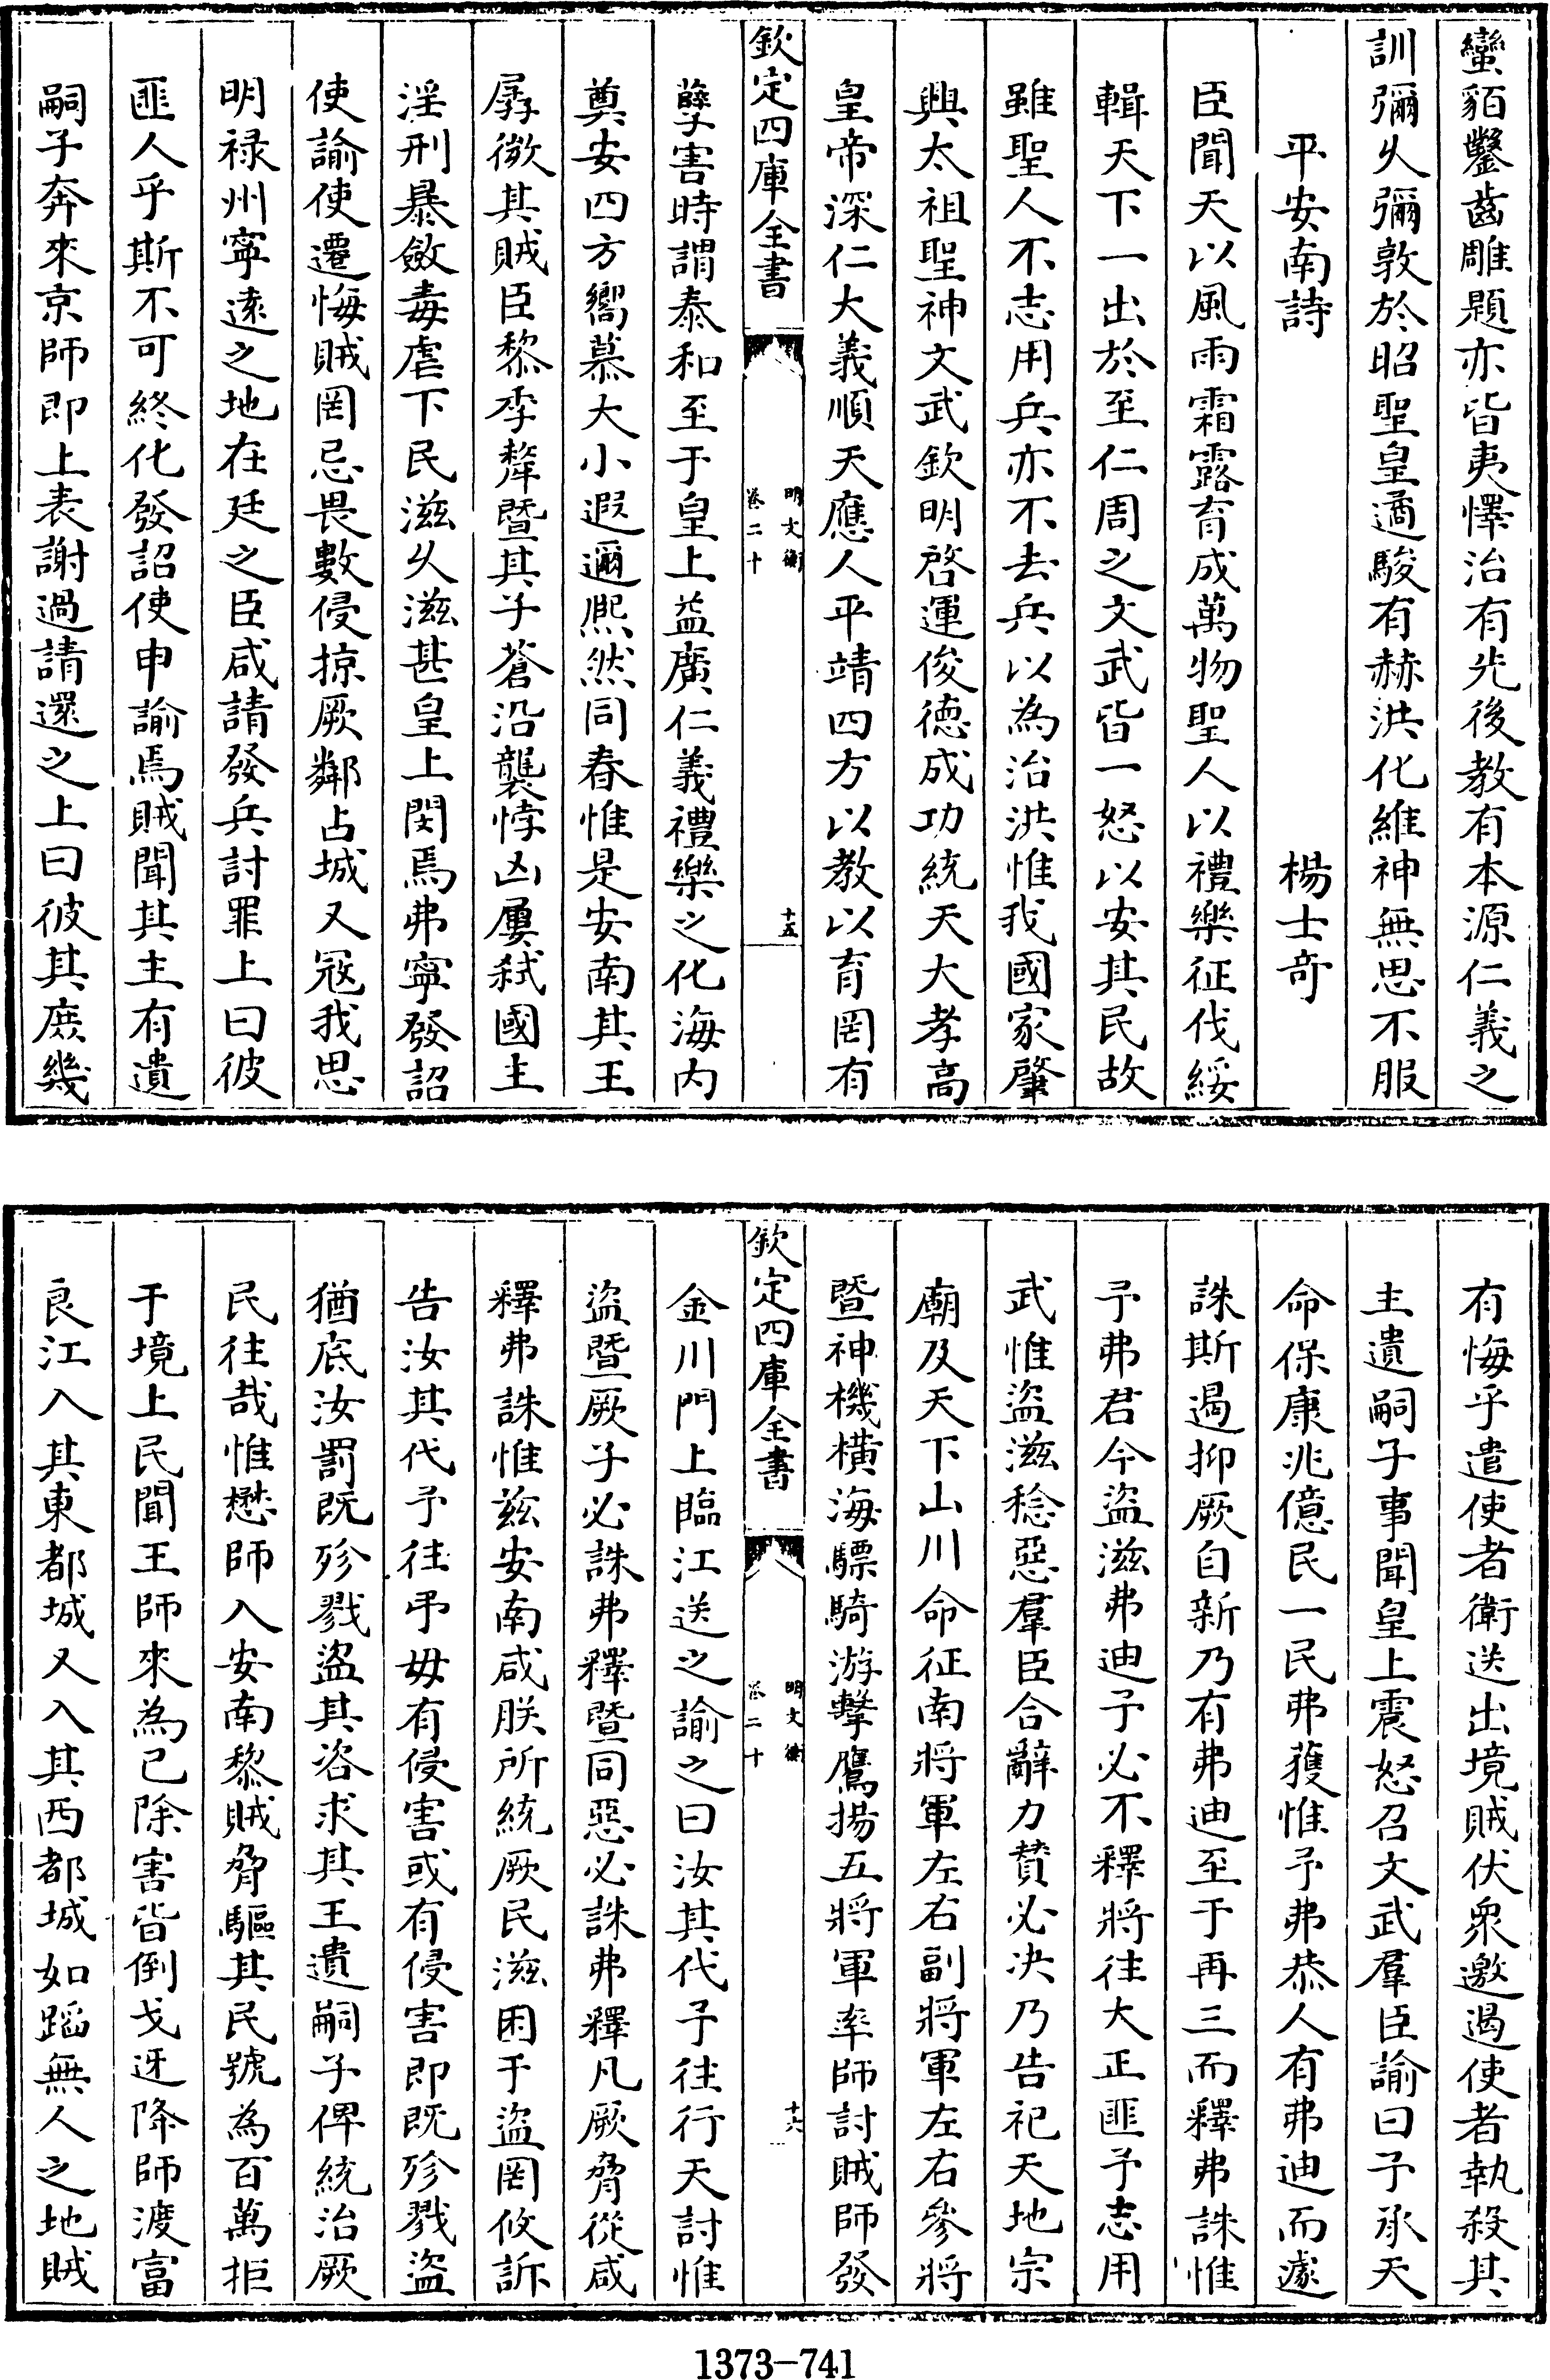 蠻貊鑿齒雕題亦皆夷懌治有先後教有本源仁義之
訓彌久彌敦於昭聖皇遹駿有赫洪化維神無思不服
平安南詩　楊士奇
臣聞天以風雨霜露育成萬物聖人以禮樂征伐綏
輯天下一出於至仁周之文武皆一怒以安其民故
雖聖人不志用兵亦不去兵以為治洪惟我國家肇
興太祖聖神文武欽明啓運俊德成功統天大孝高
皇帝深仁大義順天應人平靖四方以教以育罔有
欽定四庫全書
明文衡
卷二十
十五
孽害時謂泰和至于皇上益廣仁義禮樂之化海内
奠安四方嚮慕大小遐邇熙然同春惟是安南其王
孱微其賊臣黎季犛暨其子蒼沿襲悖凶屢弑國主
淫刑暴斂毒虐下民滋久滋甚皇上閔焉弗寧發詔
使諭使遷悔賊罔忌畏數侵掠厥鄰占城又冦我思
明禄州寧逺之地在廷之臣咸請發兵討罪上曰彼
匪人乎斯不可終化發詔使申諭焉賊聞其主有遺
嗣子奔來京師即上表謝過請還之上曰彼其庶幾
有悔乎遣使者衛送出境賊伏衆邀遏使者執殺其
主遺嗣子事聞皇上震怒召文武羣臣諭曰予承天
命保康兆億民一民弗獲惟予弗恭人有弗迪而遽
誅斯遏抑厥自新乃有弗迪至于再三而釋弗誅惟
予弗君今盜滋弗迪予必不釋將往大正匪予志用
武惟盜滋稔惡羣臣合辭力賛必决乃告祀天地宗
廟及天下山川命征南將軍左右副將軍左右參將
暨神機横海驃騎游擊鷹揚五將軍率師討賊師發
欽定四庫全書
明文衡
卷二十
十六
金川門上臨江送之諭之曰汝其代予往行天討惟
盜暨厥子必誅弗釋暨同惡必誅弗釋凡厥脅從咸
釋弗誅惟兹安南咸朕所統厥民滋困于盜罔攸訴
告汝其代予往弔毋有侵害或有侵害即既殄戮盜
猶底汝罰既殄戮盜其咨求其王遺嗣子俾統治厥
民往哉惟懋師入安南黎賊脅驅其民號為百萬拒
于境上民聞王師來為已除害皆倒戈迓降師渡富
良江入其東都城又入其西都城如蹈無人之地賊
1373-741